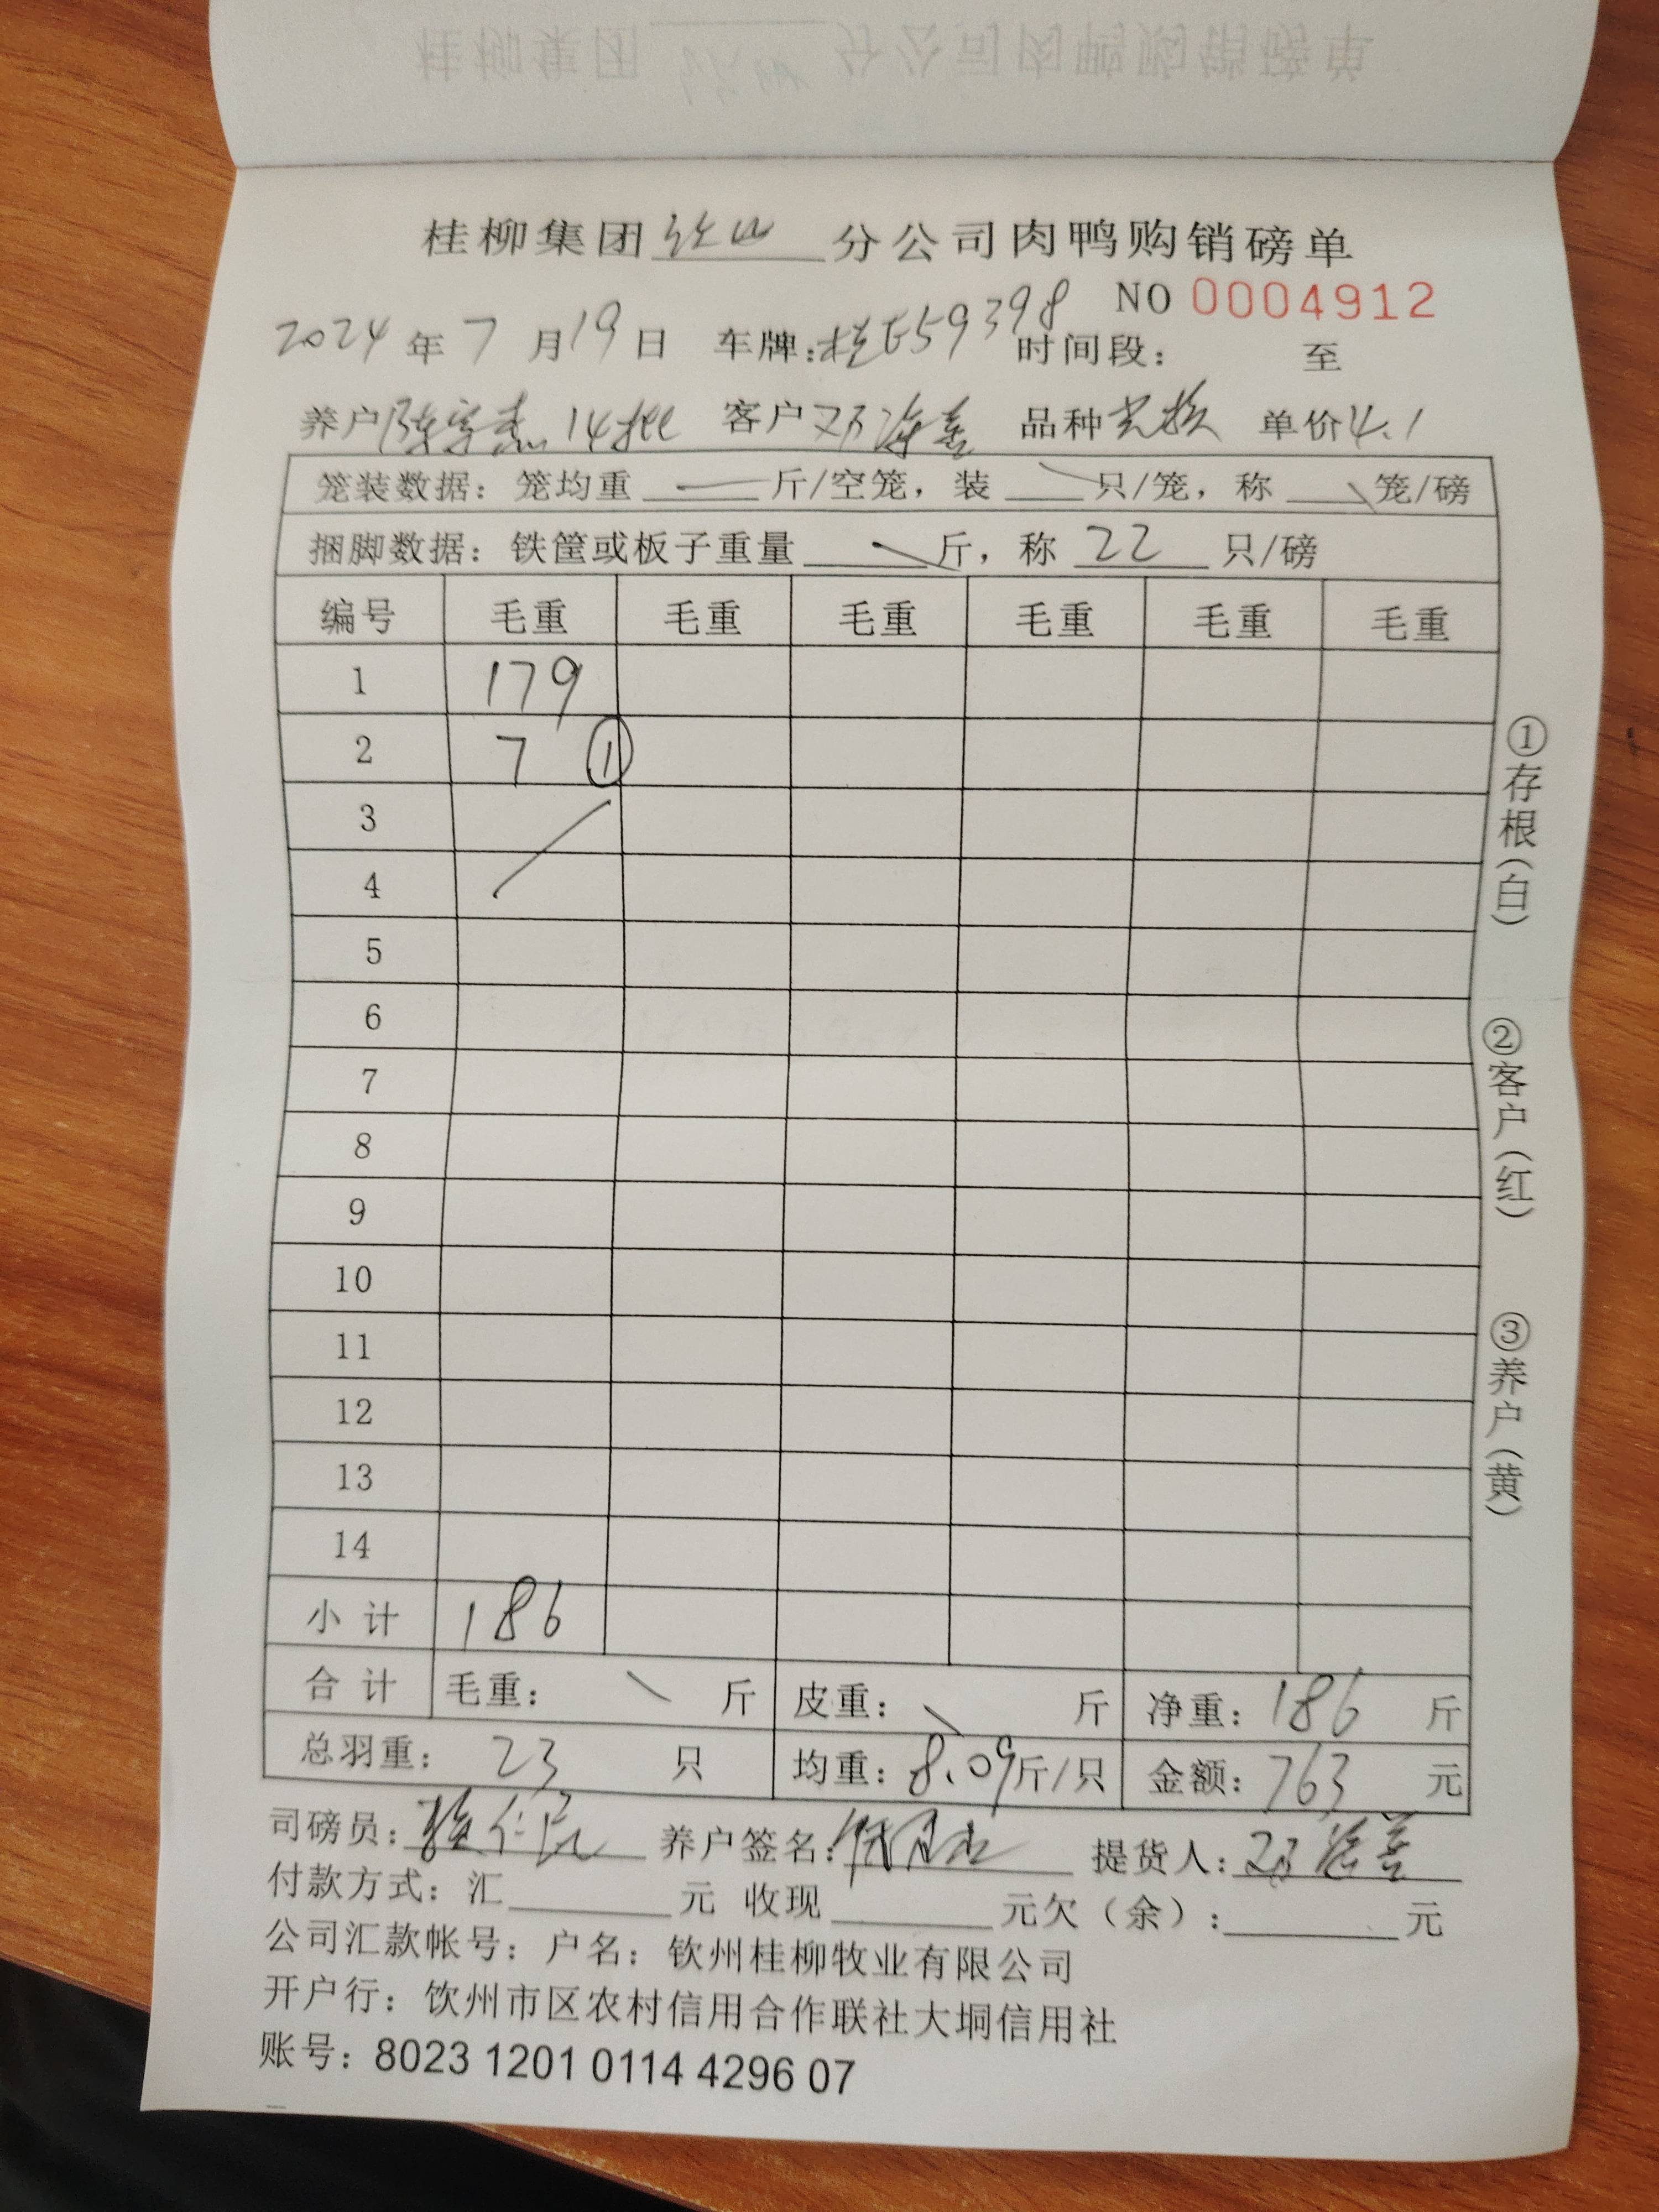 桂柳集团 分公司肉鸭购销磅单
NO 0004912
2024 年 7 月 19 日 车牌:桂E59398 时间段: 至
养户 陈 杰 14批 客户 邓 善 品种 单价 4.1
笼装数据: 笼均重 斤/空笼, 装 只/笼, 称 笼/磅
捆脚数据: 铁筐或板子重量 斤, 称 22 只/磅
编号 毛重 毛重 毛重 毛重 毛重 毛重
1 179
2 7 ①
3
4
5
6
7
8
9
10
11
12
13
14
小 计 186
合 计 毛重: 斤 皮重: 斤 净重: 186 斤
总羽重: 23 只 均重: 8.09 斤/只 金额: 763 元
司磅员: 养户签名: 提货人: 邓 善
付款方式: 汇 元 收现 元欠(余): 元
公司汇款帐号: 户名: 钦州桂柳牧业有限公司
开户行: 钦州市区农村信用合作联社大垌信用社
账号: 8023 1201 0114 4296 07
①存根(白)
②客户(红)
③养户(黄)